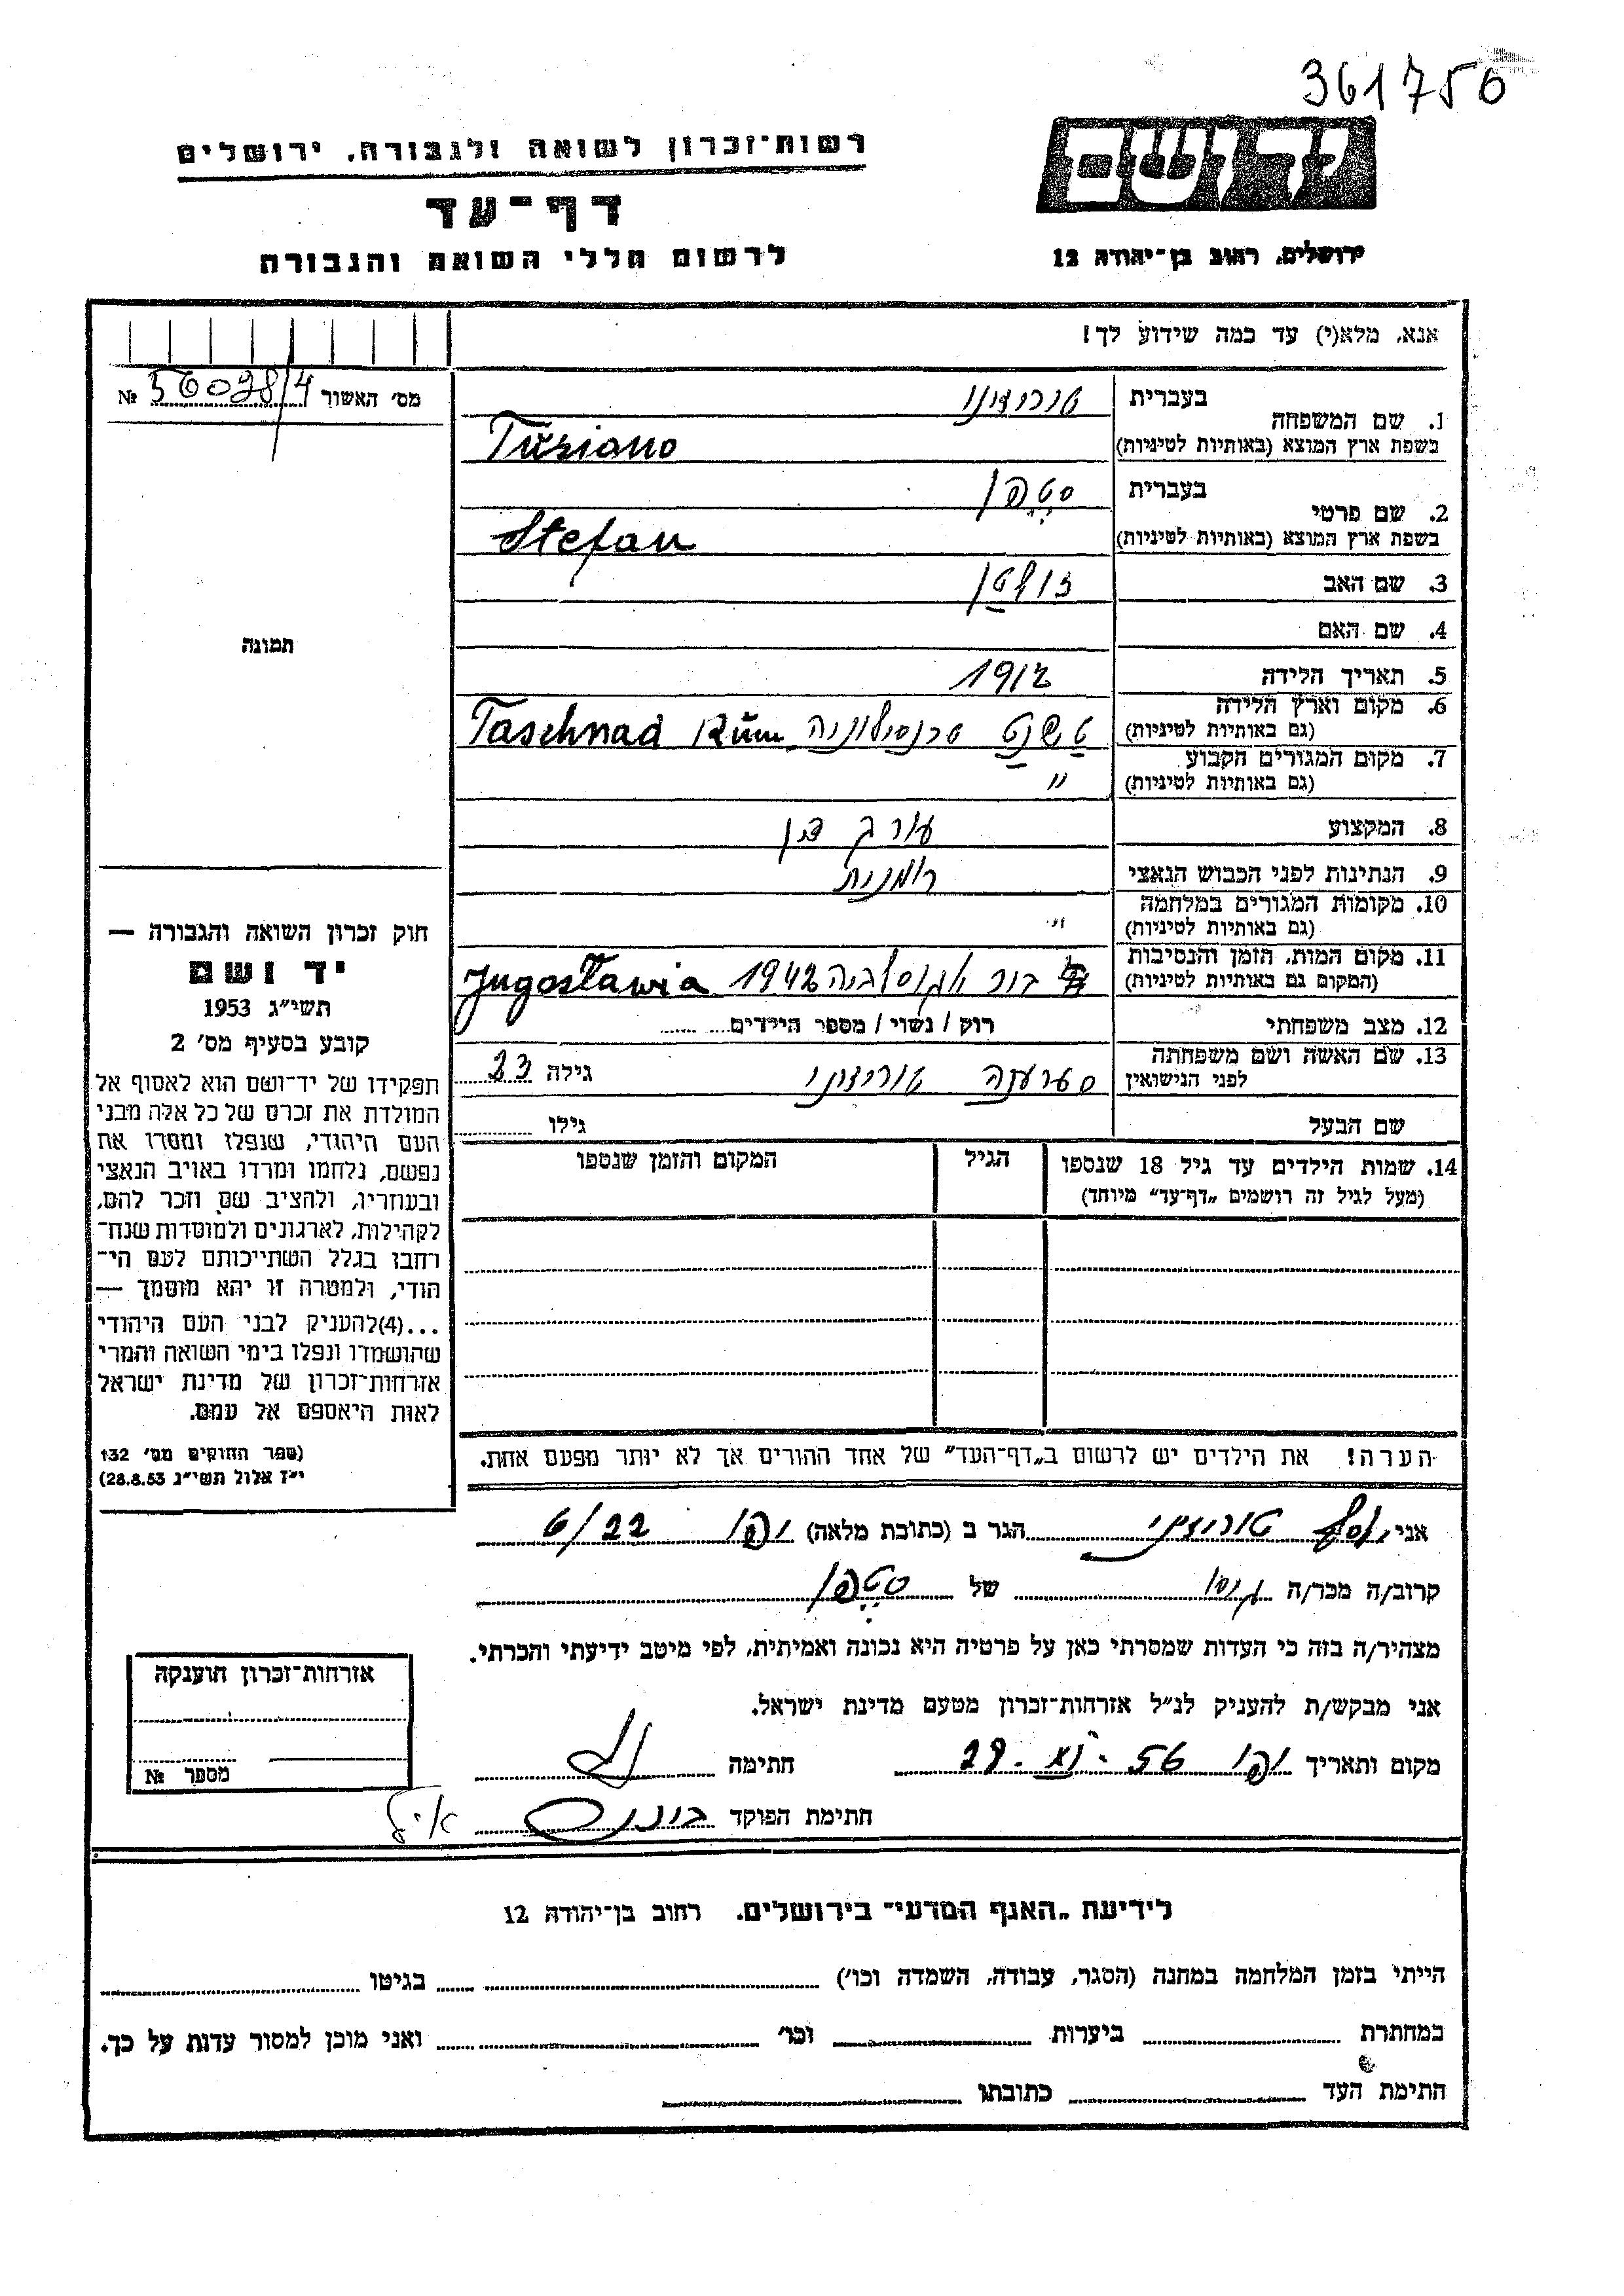 361750
רשות־זכרון לשואה ולגבורה, ירושלים
יד ושם
דף־עד
לרשום חללי השואה והגבורה
ירושלים, רחוב בן־יהודה 12
אנא, מלא(י) עד כמה שידוע לך!
מס' האשור № 56098/4
תמונה
1. שם המשפחה
בעברית
בשפת ארץ המוצא (באותיות לטיניות) Tŭriano
2. שם פרטי
בעברית סטפן
בשפת ארץ המוצא (באותיות לטיניות) Stefan
3. שם האב זולטן
4. שם האם
5. תאריך הלידה 1912
6. מקום וארץ הלידה
(גם באותיות לטיניות) טשנט טרנסילוניה Taschnad Rŭm
7. מקום המגורים הקבוע
(גם באותיות לטיניות) "
8. המקצוע עורך דין
9. הנתינות לפני הכבוש הנאצי רומנית
10. מקומות המגורים במלחמה
(גם באותיות לטיניות) "
11. מקום המות, הזמן והנסיבות
(המקום גם באותיות לטיניות) בור יוגוסלביה 1942 Jugosławia
12. מצב משפחתי רוק / נשוי / מספר הילדים
13. שם האשה ושם משפחתה
לפני הנישואין גילה 23
שם הבעל גילו
14. שמות הילדים עד גיל 18 שנספו הגיל המקום והזמן שנספו
(מעל לגיל זה רושמים „דף־עד" מיוחד)
חוק זכרון השואה והגבורה —
יד ושם
תשי"ג 1953
קובע בסעיף מס' 2
תפקידו של יד־ושם הוא לאסוף אל
המולדת את זכרם של כל אלה מבני
העם היהודי, שנפלו ומסרו את
נפשם, נלחמו ומרדו באויב הנאצי
ובעוזריו, ולהציב שם וזכר להם,
לקהילות, לארגונים ולמוסדות שנח־
רבו בגלל השתייכותם לעם הי־
הודי, ולמטרה זו יהא מוסמך —
...(4)להעניק לבני העם היהודי
שהושמדו ונפלו בימי השואה והמרי
אזרחות־זכרון של מדינת ישראל
לאות היאספם אל עמם.
(ספר החוקים מס' 132
י"ז אלול תשי"ג 28.8.53)
הערה! את הילדים יש לרשום ב„דף־העד" של אחד ההורים אך לא יותר מפעם אחת.
אני יוסף הגר ב (כתובת מלאה) יפו 6/22
קרוב/ה מכר/ה של סטפן
מצהיר/ה בזה כי העדות שמסרתי כאן על פרטיה היא נכונה ואמיתית, לפי מיטב ידיעתי והכרתי.
אני מבקש/ת להעניק לנ"ל אזרחות־זכרון מטעם מדינת ישראל.
מקום ותאריך יפו 29. XI. 56 חתימה
חתימת הפוקד
אזרחות־זכרון הוענקה
מספר №
לידיעת „האגף המדעי" בירושלים, רחוב בן־יהודה 12
הייתי בזמן המלחמה במחנה (הסגר, עבודה, השמדה וכו') בגיטו
במחתרת ביערות וכו' ואני מוכן למסור עדות על כך.
חתימת העד כתובתו